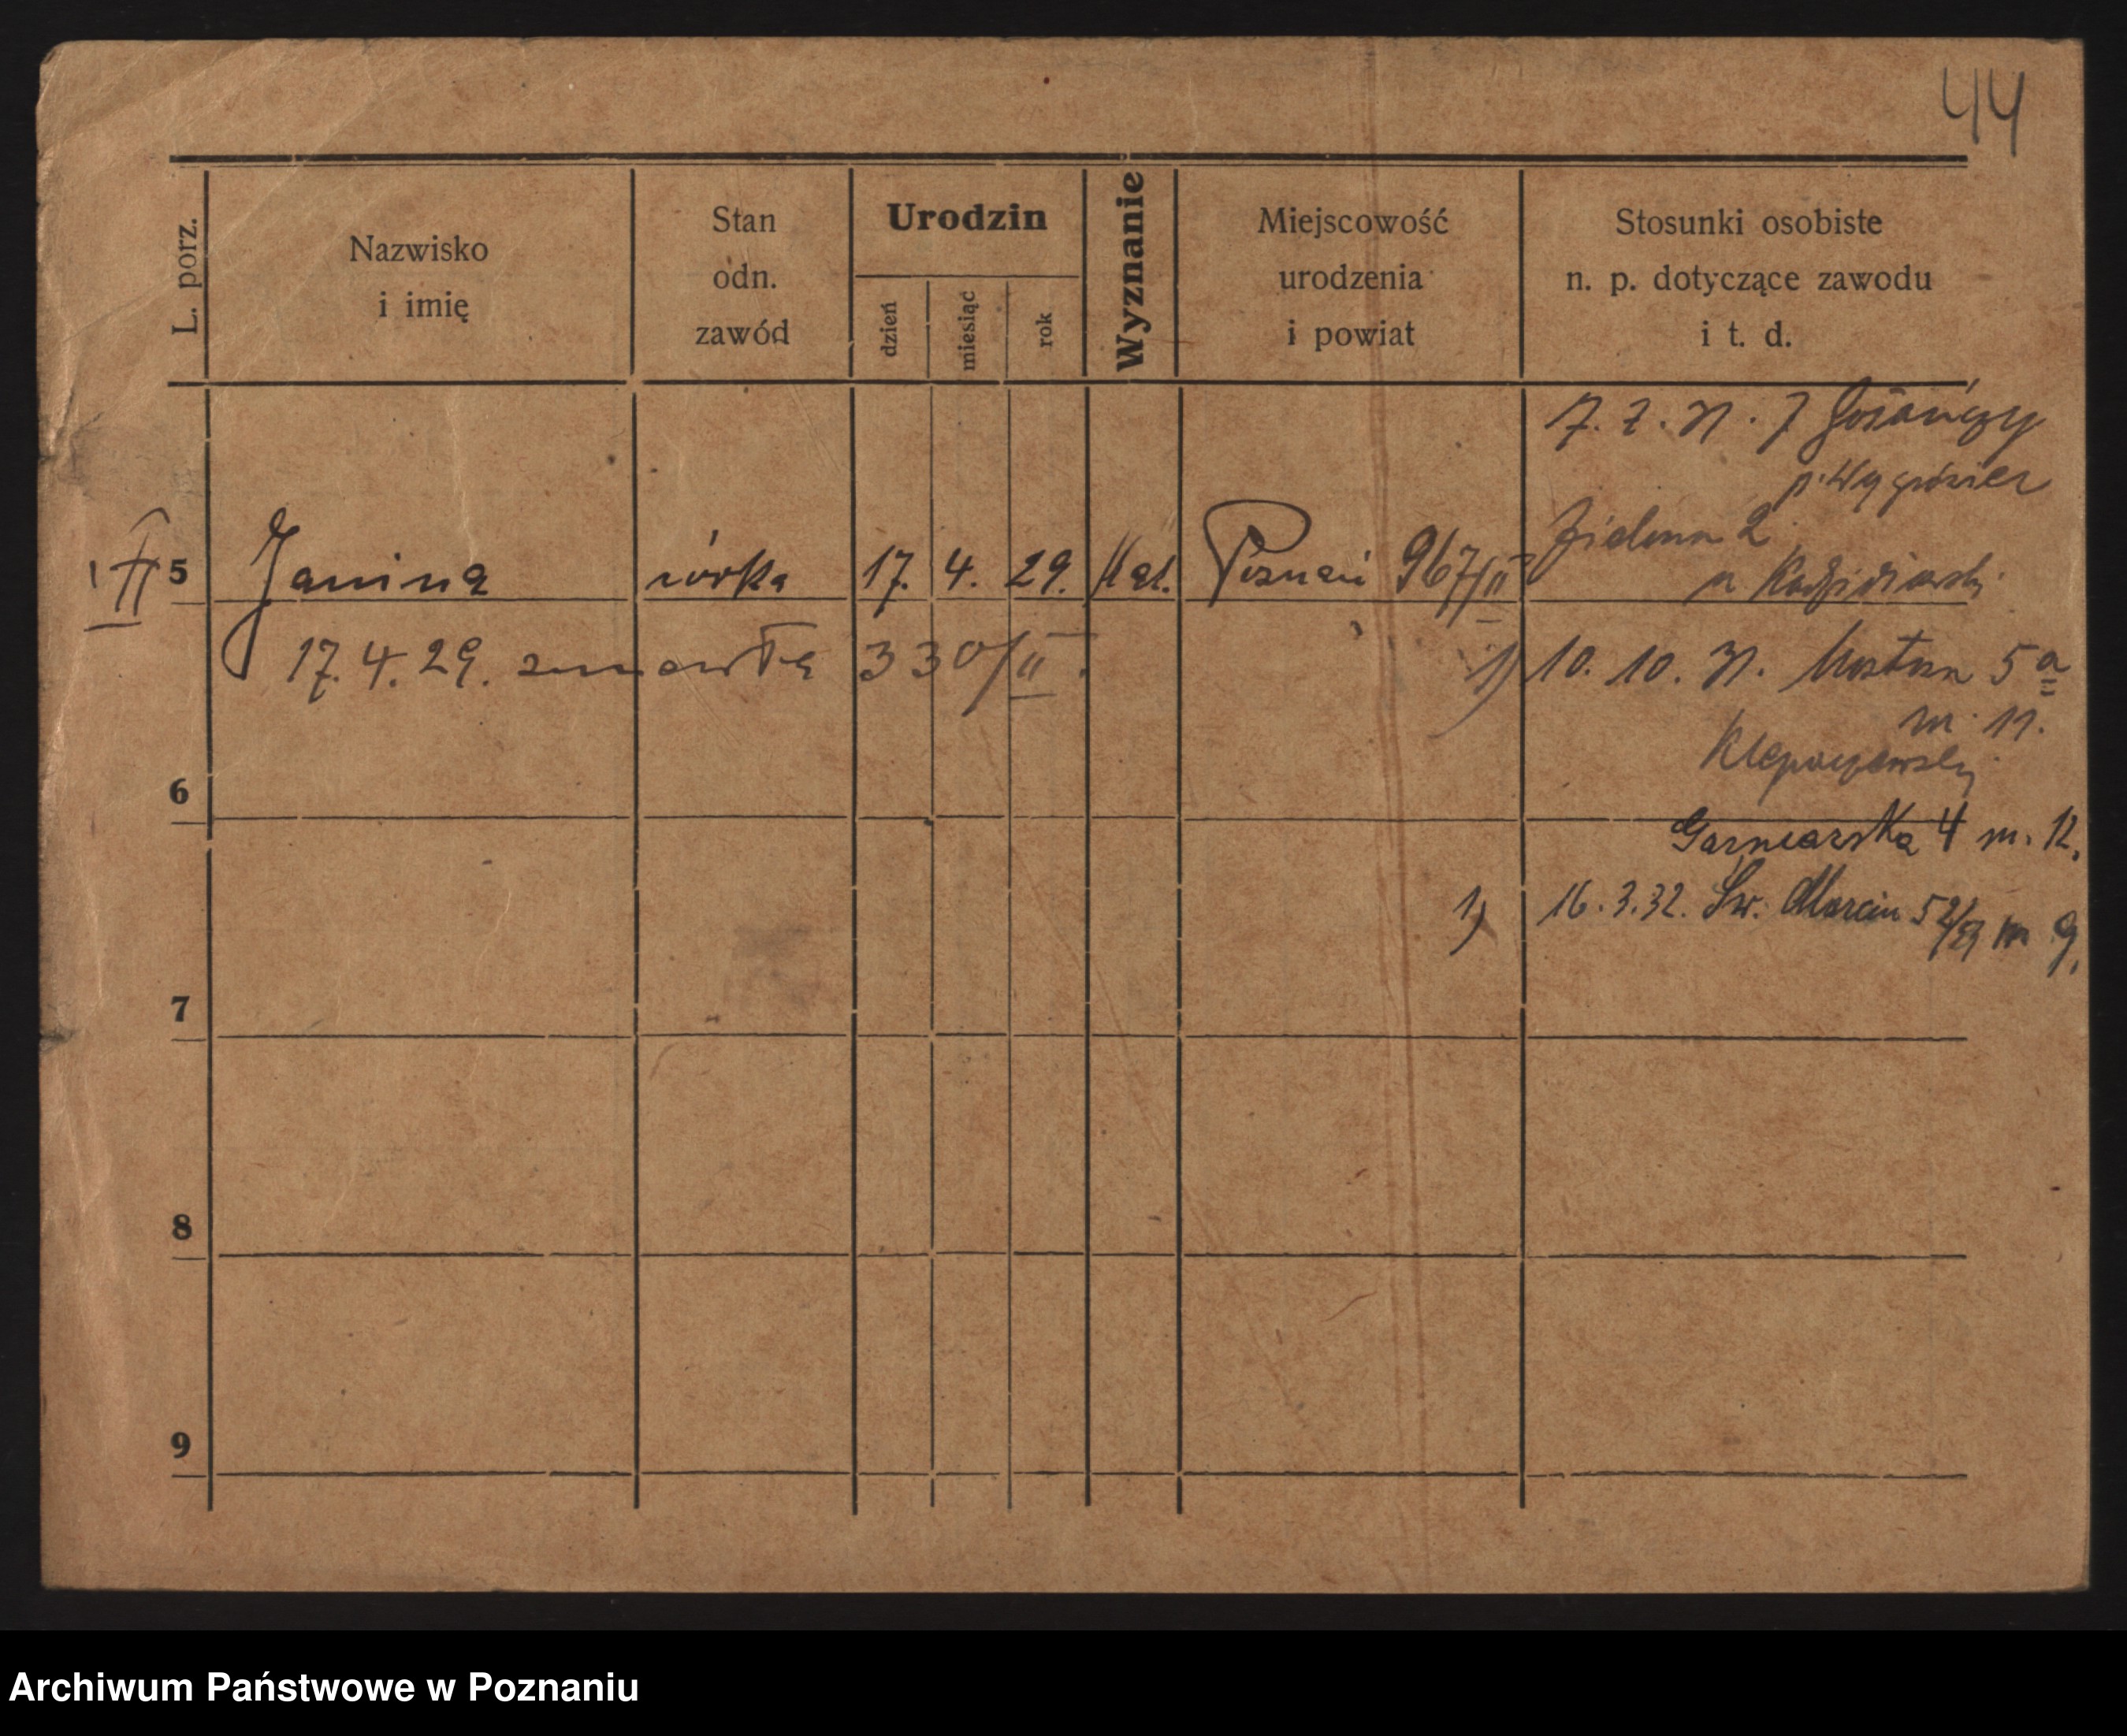 44
L. porz.
Nazwisko
i imię
Stan
odn.
zawód
Urodzin
dzień
miesiąc
rok
Wyznanie
Miejscowość
urodzenia
i powiat
Stosunki osobiste
n. p. dotyczące zawodu
i t. d.
7. 2. 31. z
Zielona 2
5 Janina córka 17. 4. 29. kat. Poznań 967/II
17. 4. 29. zmarła 330/II.
1) 10. 10. 31. Mostowa 5a
m. 11.
6
Garncarska 4 m. 12.
1) 16. 3. 32. Św. Marcin m 9.
7
8
9
Archiwum Państwowe w Poznaniu